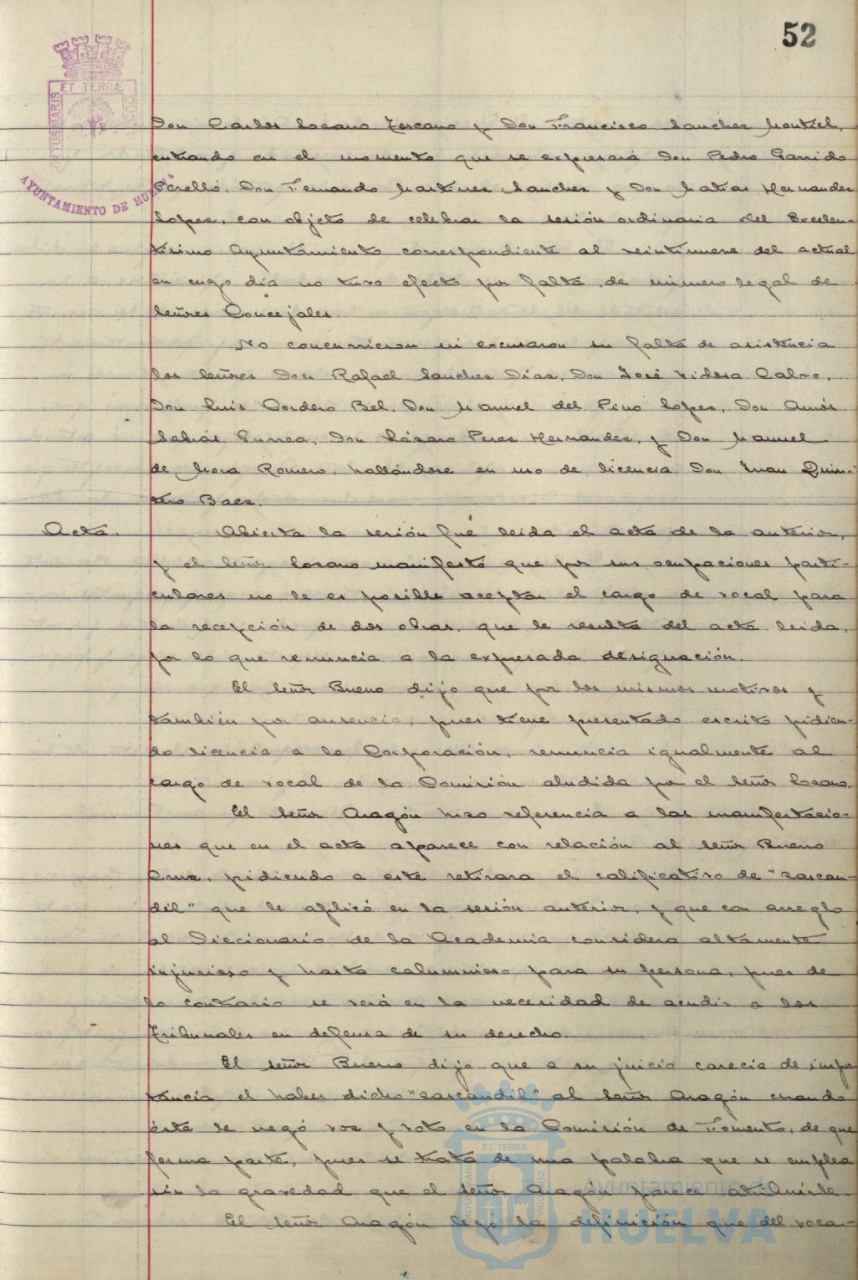 52
PORTUS MARIS
ET TERRÆ
CUSTODIA
AYUNTAMIENTO DE HUELVA
Don Carlos Lozano Toscano y Don Francisco Sanchez Montiel,
entrando en el momento que se expresará Don Pedro Garrido
Perelló, Don Fernando Martinez Sanchez y Don Matias Hernandez
Lopez, con objeto de celebrar la sesión ordinaria del Excelen-
tisimo Ayuntamiento correspondiente al veintinueve del actual
en cuyo dia no tuvo efecto por falta de número legal de
Señores Concejales.
No concurrieron ni excusaron su falta de asistencia
los Señores Don Rafael Sanchez Diaz, Don José Vidosa Calvo,
Don Luis Cordero Bel, Don Manuel del Pino Lopez, Don Amós
Sabrás Gurrea, Don Lázaro Perez Hernandez, y Don Manuel
de Mora Romero, hallándose en uso de licencia Don Juan Quin-
tero Baez.
Acta.
Abierta la sesión fué leida el acta de la anterior,
y el Señor Lozano manifestó que por sus ocupaciones parti-
culares no le es posible aceptar el cargo de vocal para
la recepción de dos obras, que le resulta del acta leida,
por lo que renuncia a la expresada designación.
El Señor Bueno dijo que por los mismos motivos y
también por ausencia, pues tiene presentado escrito pidien-
do licencia a la Corporación, renuncia igualmente al
cargo de vocal de la Comisión aludida por el Señor Lozano.
El Señor Aragón hizo referencia a las manifestacio-
nes que en el acta aparece con relación al Señor Bueno
Cruz, pidiendo a este retirara el calificativo de "zascan-
dil" que le aplicó en la sesión anterior, y que con arreglo
al Diccionario de la Academia considera altamente
injurioso y hasta calumnioso para su persona, pues de
lo contrario se verá en la necesidad de acudir a los
Tribunales en defensa de su derecho.
El Señor Bueno dijo que a su juicio carecia de impor
tancia el haber dicho "zascandil" al Señor Aragón cuando
éste le negó voz y voto en la Comisión de Fomento, de que
forma parte, pues se trata de una palabra que se emplea
sin la gravedad que el Señor Aragón parece atribuirle.
El Señor Aragón leyó la definición que del voca-
Ayuntamiento de
HUELVA